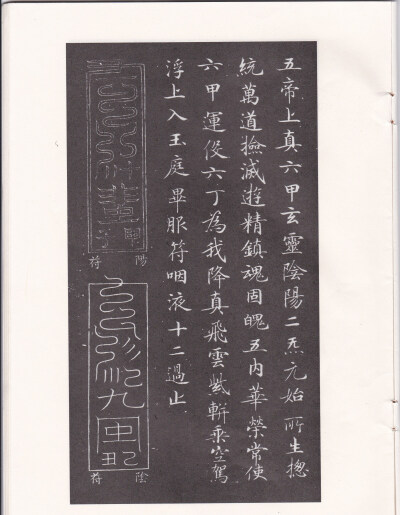 五帝上真六甲玄靈陰陽二炁元始所生揔
統萬道撿滅遊精鎮魂固魄五內華榮常使
六甲運役六丁為我降真飛雲紫軿乘空駕
浮上入玉庭畢服符咽液十二過止
陽符
陰符